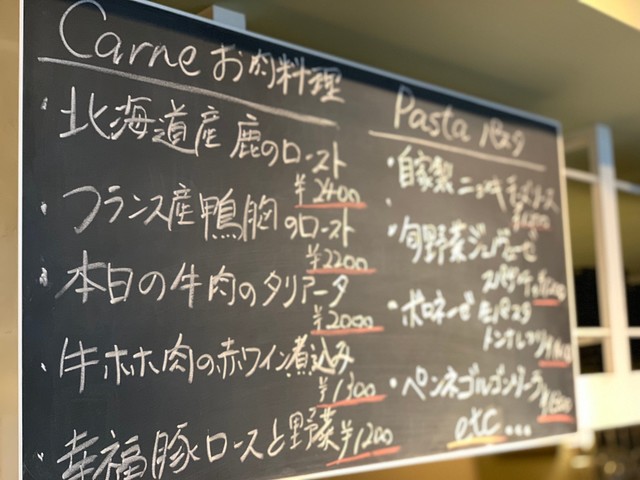 Carne お肉料理
・北海道産 鹿のロースト
¥2400
・フランス産鴨胸のロースト
¥2200
・本日の牛肉のタリアータ
¥2000
・牛ホホ肉の赤ワイン煮込み
¥1300
・幸福豚ロースと野菜 ¥1200
Pasta パスタ
・自家製ニョッキ
・旬野菜ジェノベーゼ
スパゲティ
・ボロネーゼ 生パスタ
・ペンネゴルゴンゾーラ
etc...